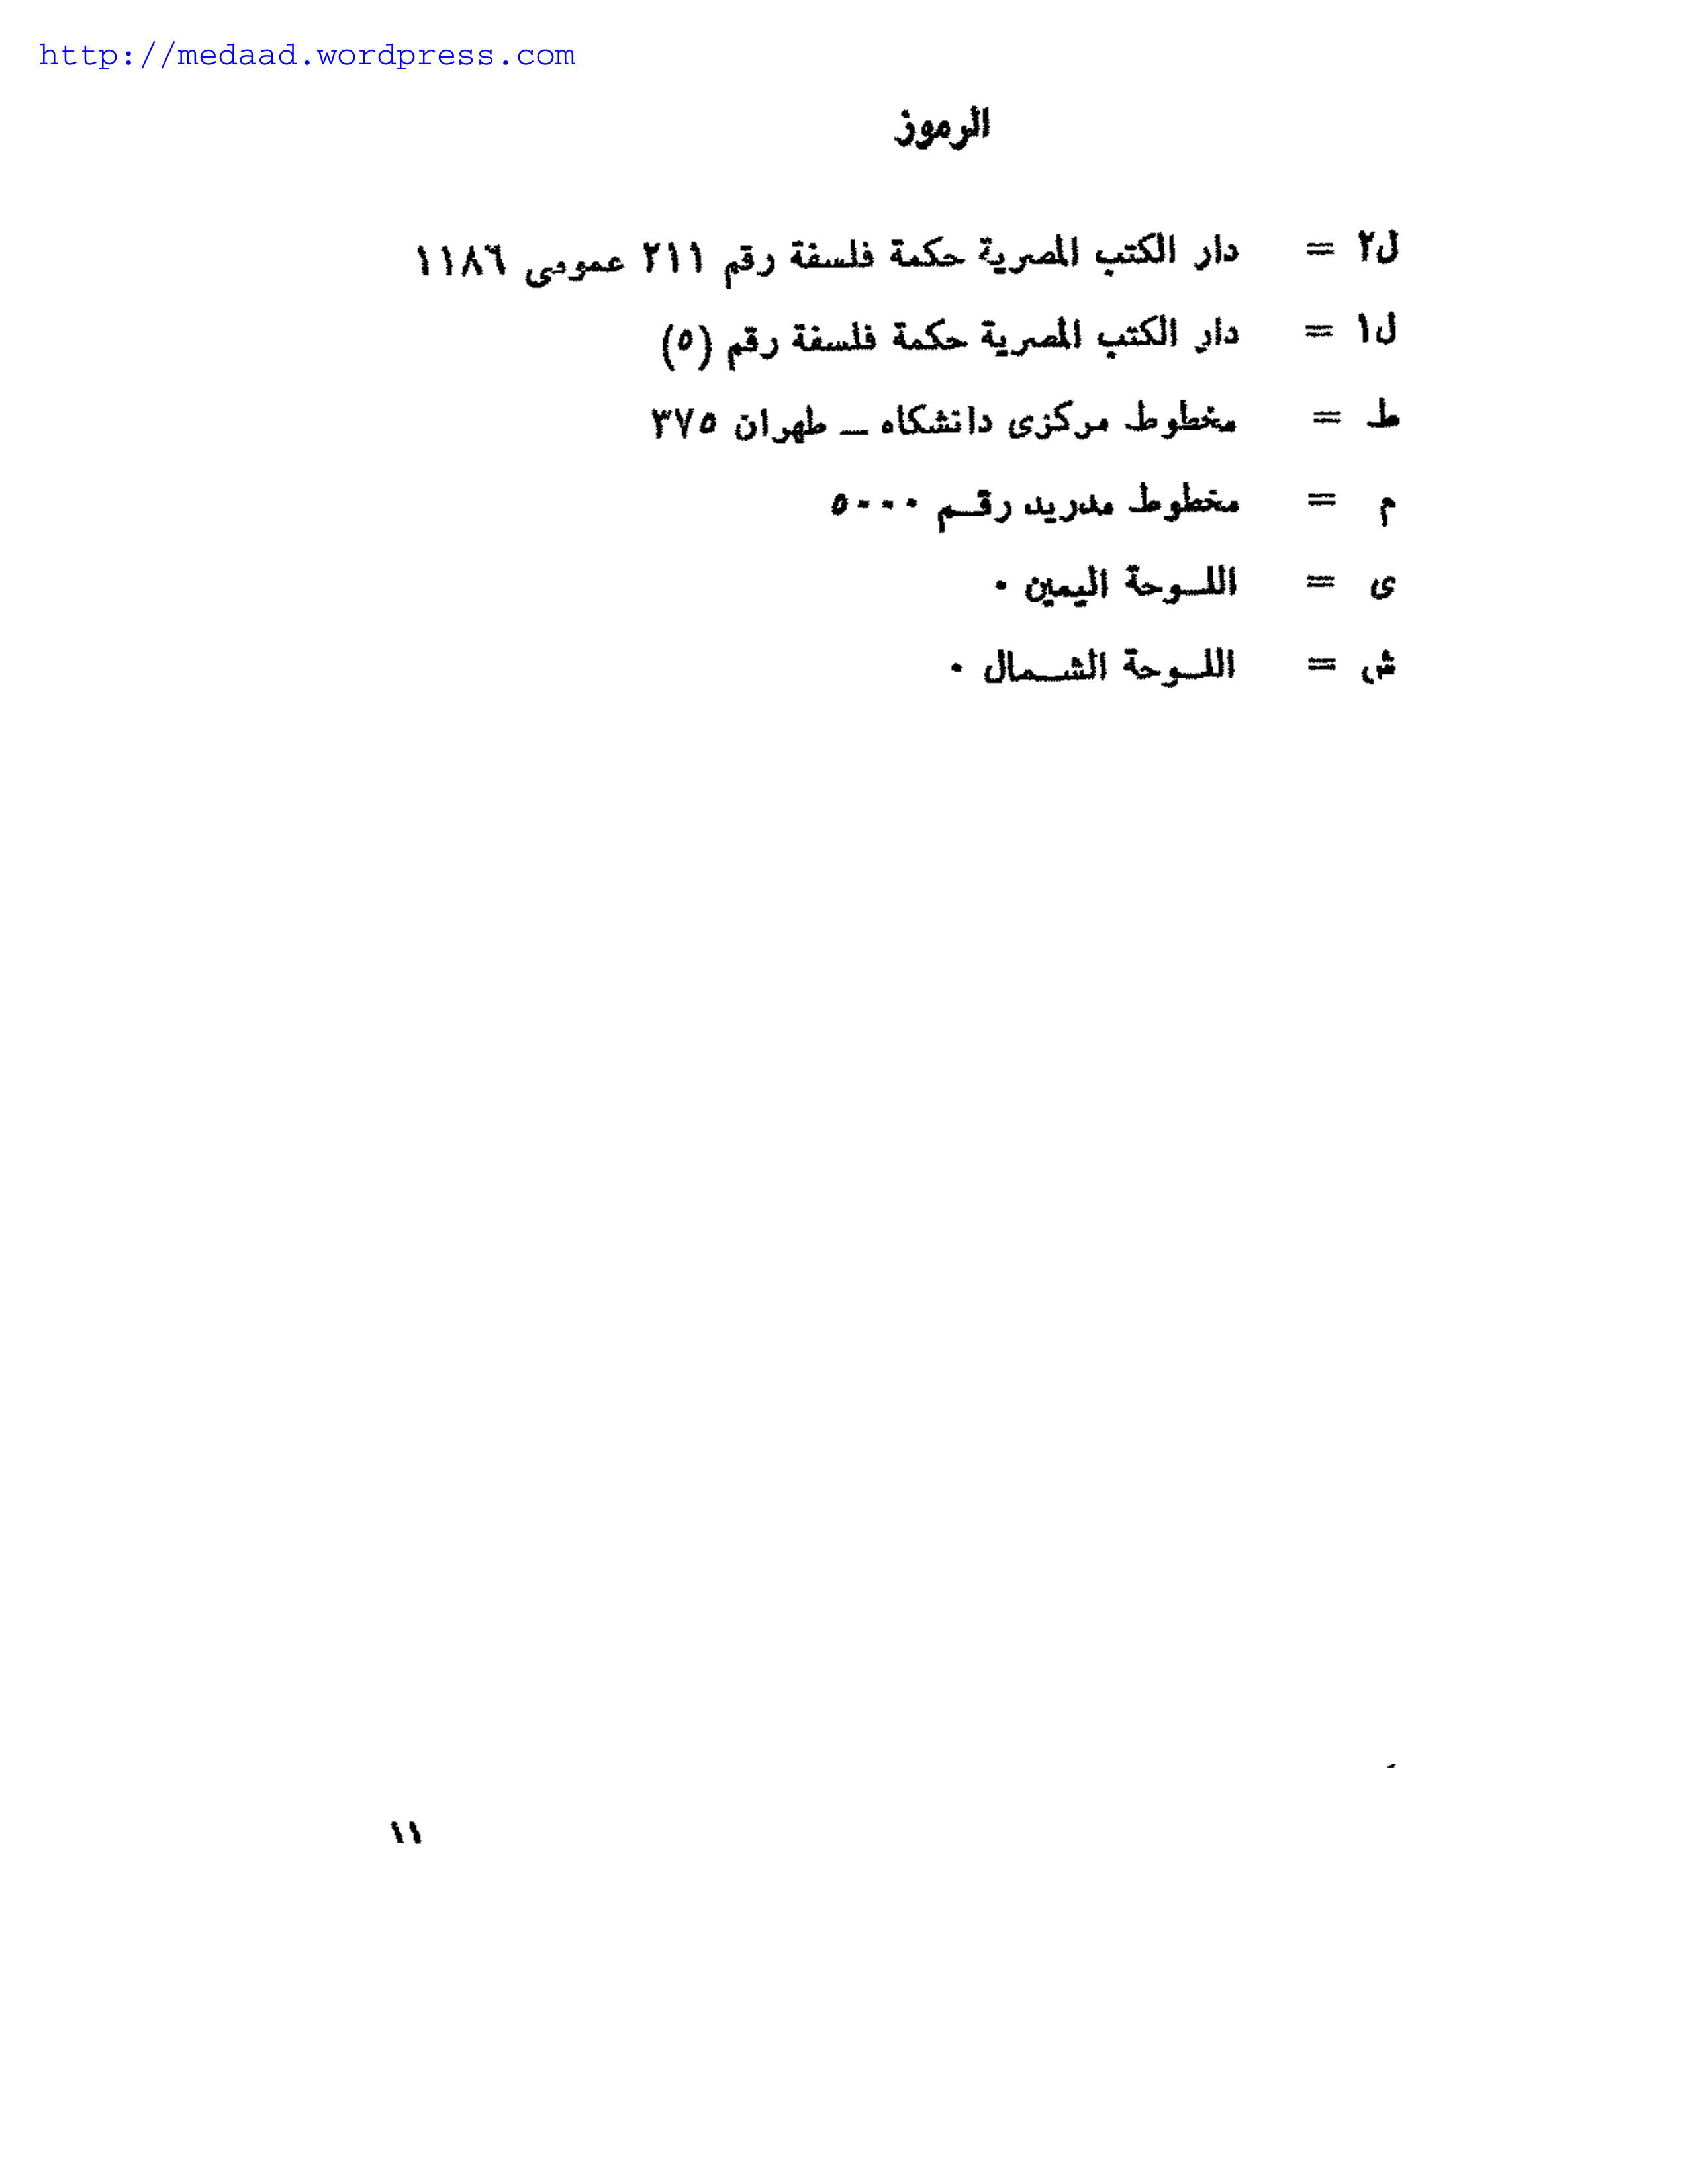 http://medaad.wordpress.com
الرموز
ل٢ = دار الكتب المصرية حكمة فلسفة رقم ٢١١ عمومى ١١٨٦
ل١ = دار الكتب المصرية حكمة فلسفة رقم (٥)
ط = مخطوط مركزى دانشكاه ــ طهران ٣٧٥
م = مخطوط مدريد رقم ٥٠٠٠
ى = اللوحة اليمين ٠
ش = اللوحة الشمال ٠
١١